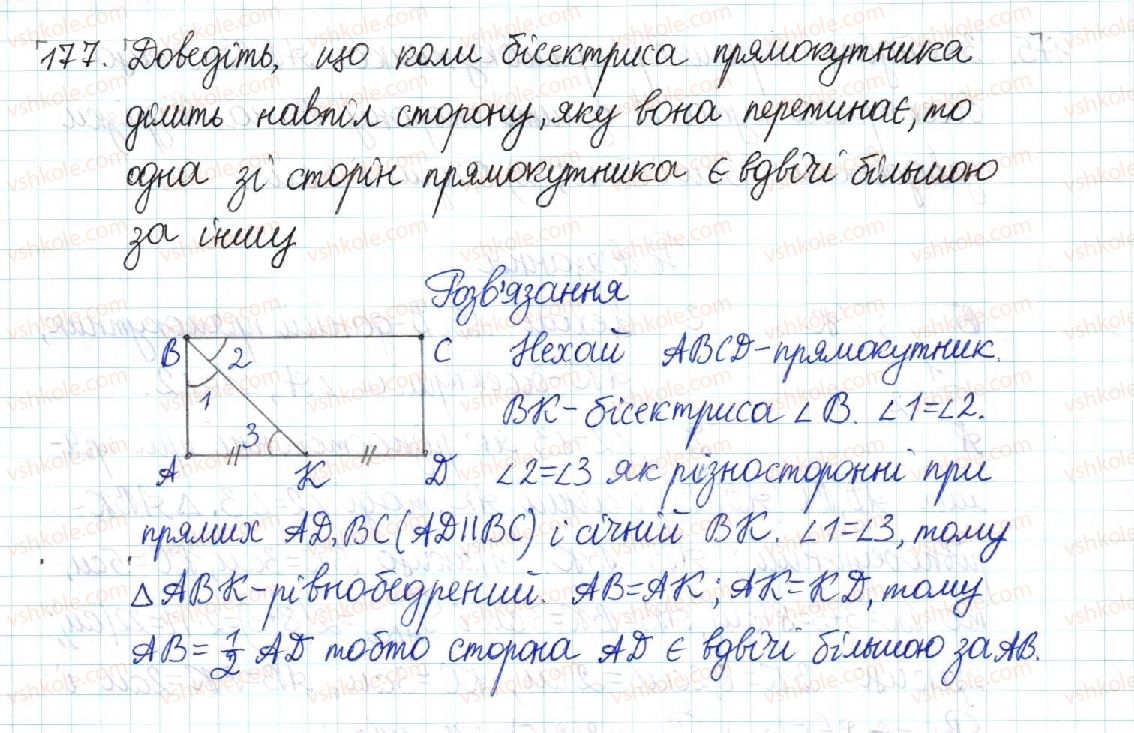 177. Доведіть, що коли бісектриса прямокутника
ділить навпіл сторону, яку вона перетинає, то
одна зі сторін прямокутника є вдвічі більшою
за іншу
Розв'язання
B 2 C
1
3
A K D
Нехай ABCD - прямокутник.
BK - бісектриса ∠B. ∠1=∠2.
∠2=∠3 як різносторонні при
прямих AD, BC (AD||BC) і січній BK. ∠1=∠3, тому
△ABK - рівнобедрений. AB=AK; AK=KD, тому
AB = 1/2 AD тобто сторона AD є вдвічі більшою за AB.
vshkole.com